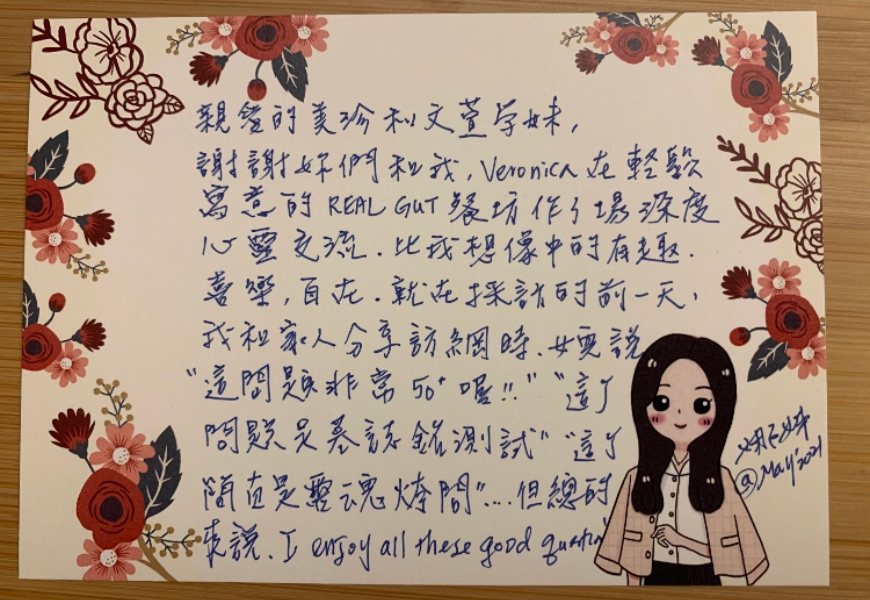 親愛的美珍和文萱学妹，
謝謝妳們和我，Veronica在輕鬆
寓意的 REAL GUT 餐坊作个場深度
心靈交流．比我想像中的有趣．
喜樂，自在．就在採訪的前一天，
我和家人分享訪綱時．女兒說
"這問題非常50⁺喔!!" "這个
問題是墓誌銘測試" "這个
簡直是靈魂烤問"…但總的
來說．I enjoy all these good question
@May'2021